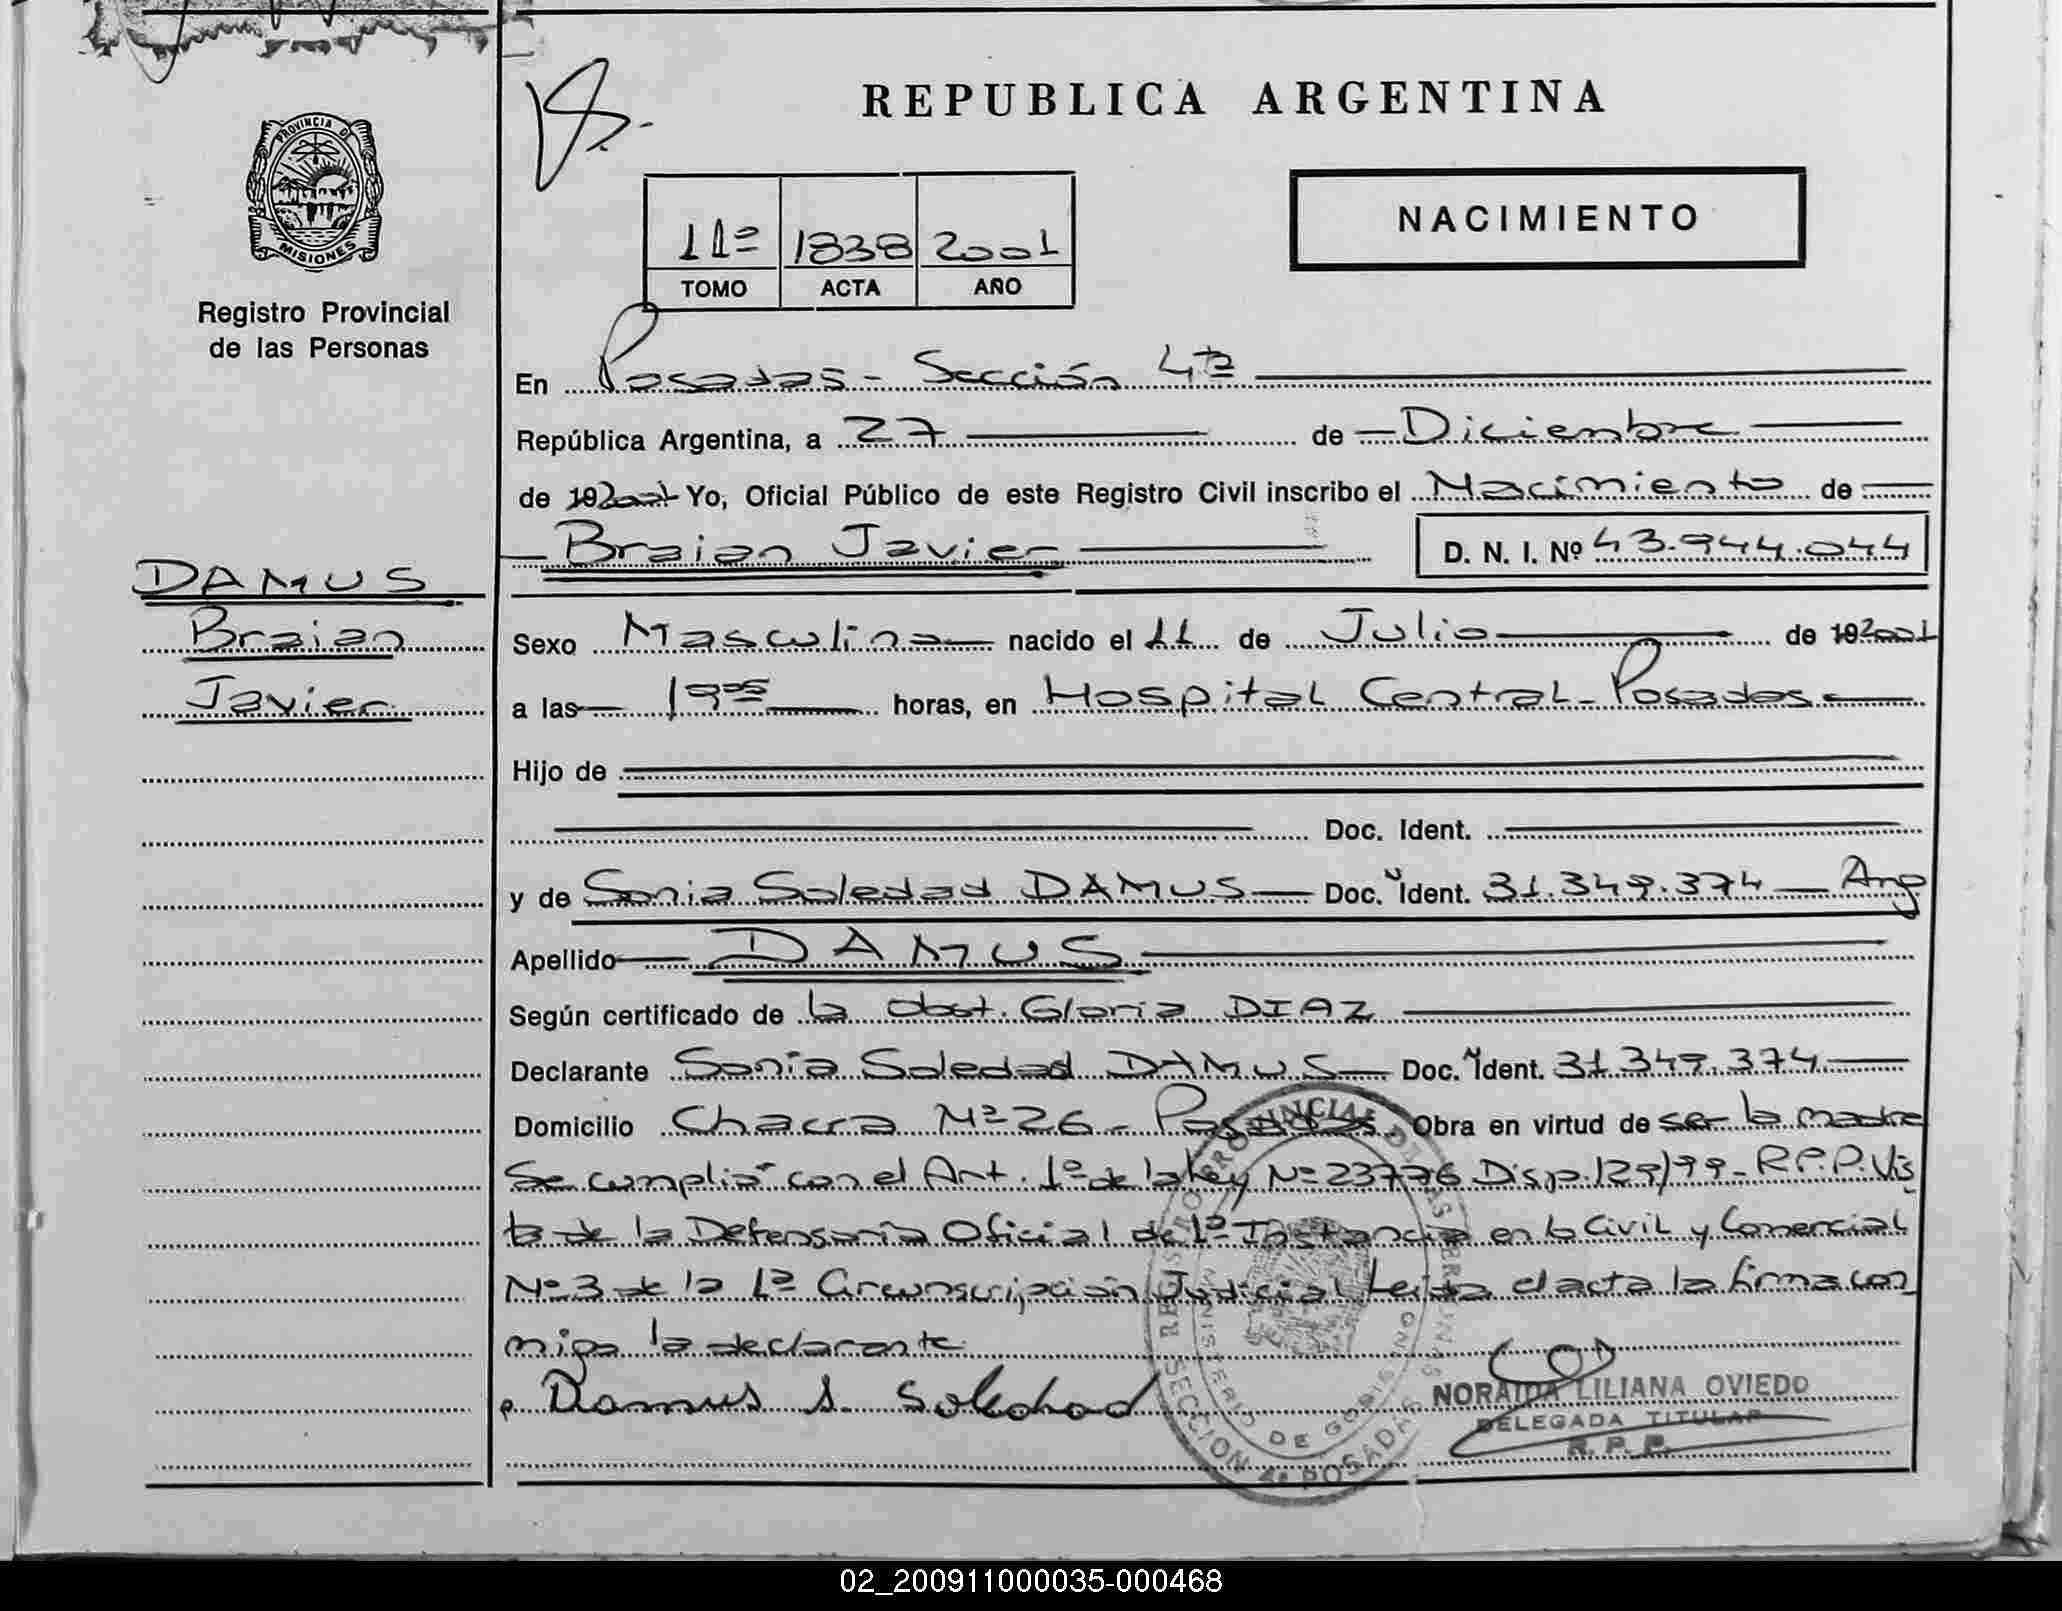 REPUBLICA ARGENTINA
PROVINCIA DE
MISIONES
Registro Provincial
de las Personas
NACIMIENTO
11º 1838 2001
TOMO ACTA AÑO
En Posadas - Sección 4ta
República Argentina, a 27 de Diciembre
de 192001 Yo, Oficial Público de este Registro Civil inscribo el Nacimiento de
Braian Javier D. N. I. Nº 43.944.044
DAMUS
Braian
Javier
Sexo Masculino nacido el 11 de Julio de 192001
a las 19 05 horas, en Hospital Central - Posadas
Hijo de
Doc. Ident.
y de Sonia Soledad DAMUS Doc. Ident. 31.349.374 Arg
Apellido DAMUS
Según certificado de la Obst. Gloria DIAZ
Declarante Sonia Soledad DAMUS Doc. Ident. 31.349.374
Domicilio Chacra Nº 26 - Posadas Obra en virtud de ser la madre
Se cumplió con el Art. 1º de la Ley Nº 23776 Disp. 129/99 - R.P.P. Vis
ta de la Defensoría Oficial de 1º Instancia en lo Civil y Comercial
Nº 3 de la 1ª Circunscripción Judicial Leida el acta la firma con
migo la declarante
Damus S. Soledad
NORAIDA LILIANA OVIEDO
DELEGADA TITULAR
R. P. P.
REGISTRO PROVINCIAL DE LAS PERSONAS
MINISTERIO DE GOBIERNO
SECCION 4ª POSADAS
02_200911000035-000468